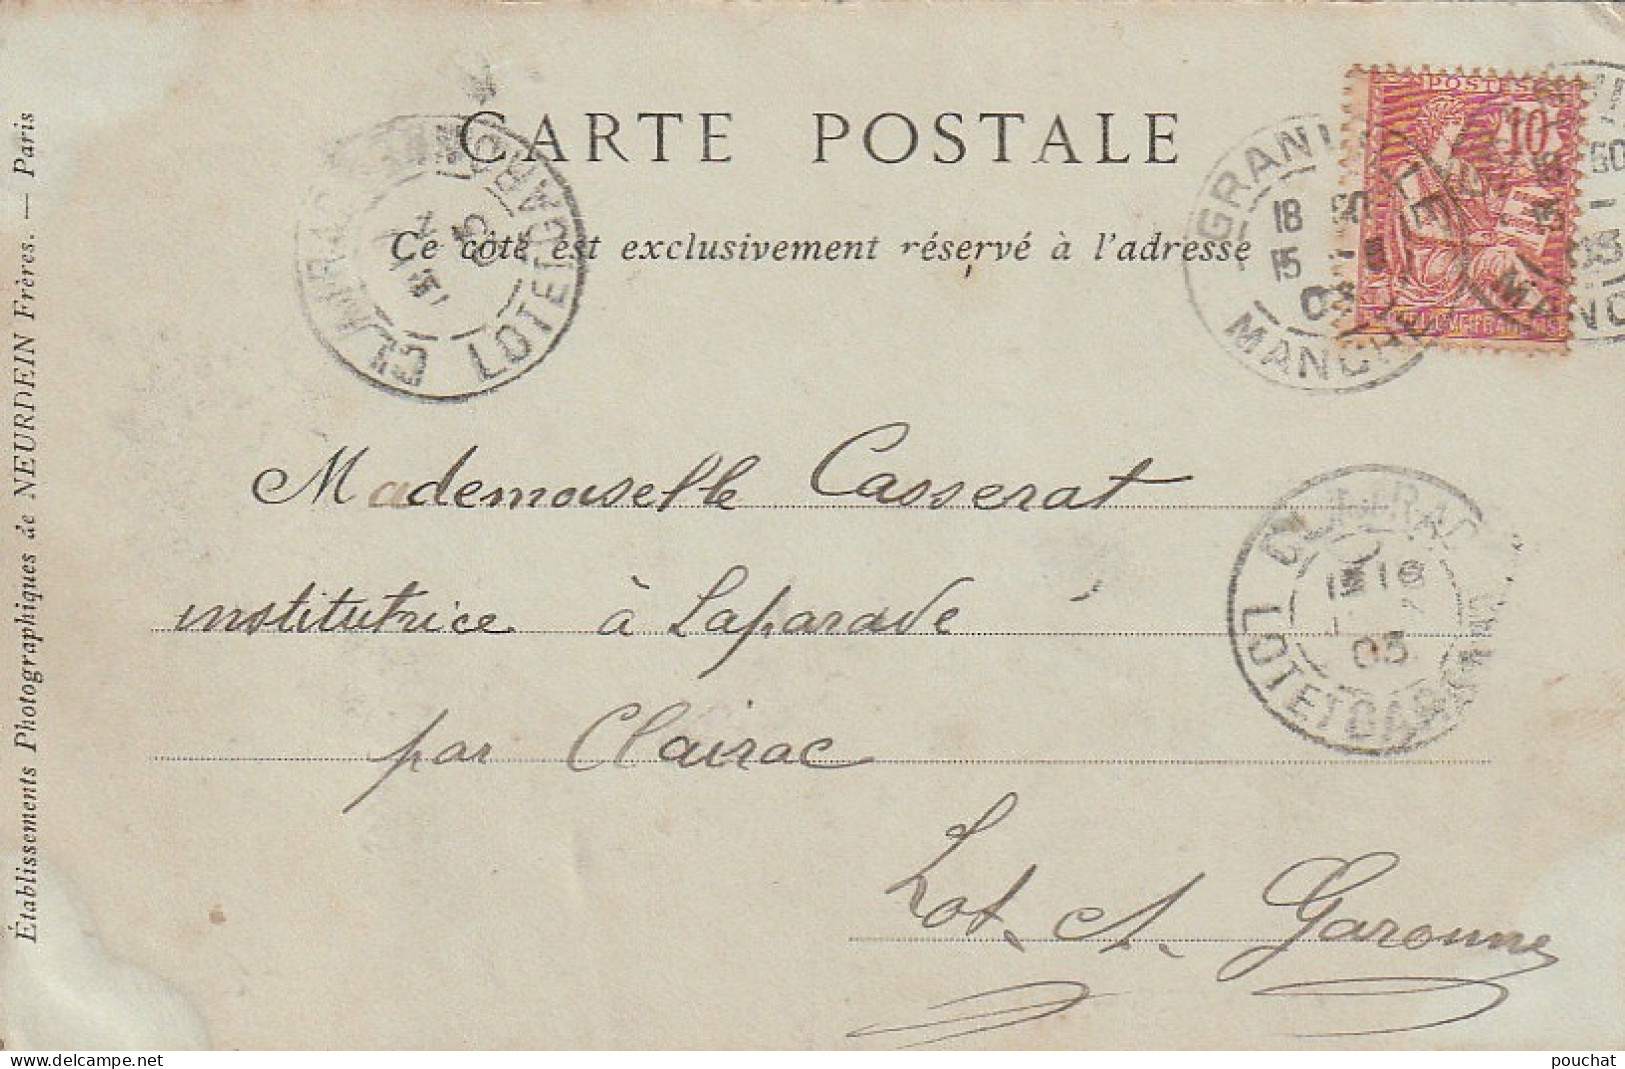 CARTE POSTALE
Ce côté est exclusivement réservé à l'adresse
POSTES
10
GRANVILLE
18 50
15
03
MANCHE
CLAIRAC
LOT ET GARONNE
03
Mademoiselle Casserat
institutrice à Laparade
par Clairac
Lot. et. Garonne
CLAIRAC
16
03
LOT ET GARONNE
Établissements Photographiques de NEURDEIN Frères. — Paris
www.delcampe.net
pouchat